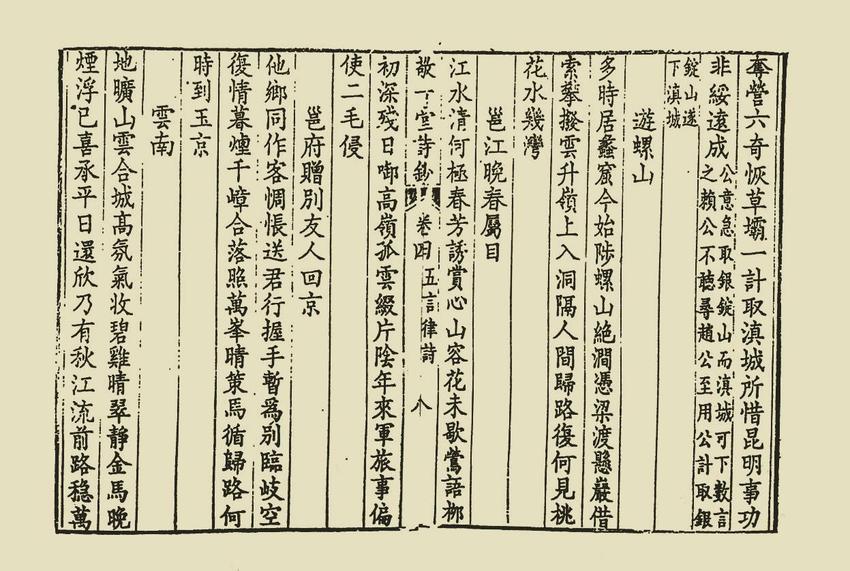 奪營六奇恢草壩一計取滇城所惜昆明事功
非綏遠成公意急取銀錠山而滇城可下數言
之賴公不聽尋趙公至用公計取銀
錠山遂
下滇城
遊螺山
多時居蠡窟今始陟螺山絕澗憑梁渡懸巖借
索攀撥雲升嶺上入洞隔人間歸路復何見桃
花水幾灣
邕江晚春屬目
江水清何極春芳誘賞心山容花未歇鶯語柳
敬一堂詩鈔 卷四 五言律詩 八
初深殘日啣高嶺孤雲綴片陰年來軍旅事偏
使二毛侵
邕府贈別友人回京
他鄉同作客惆悵送君行握手暫爲別臨岐空
復情暮煙千嶂合落照萬峯晴策馬循歸路何
時到玉京
雲南
地曠山雲合城高氛氣收碧雞晴翠靜金馬晚
煙浮已喜承平日還欣乃有秋江流前路穩萬